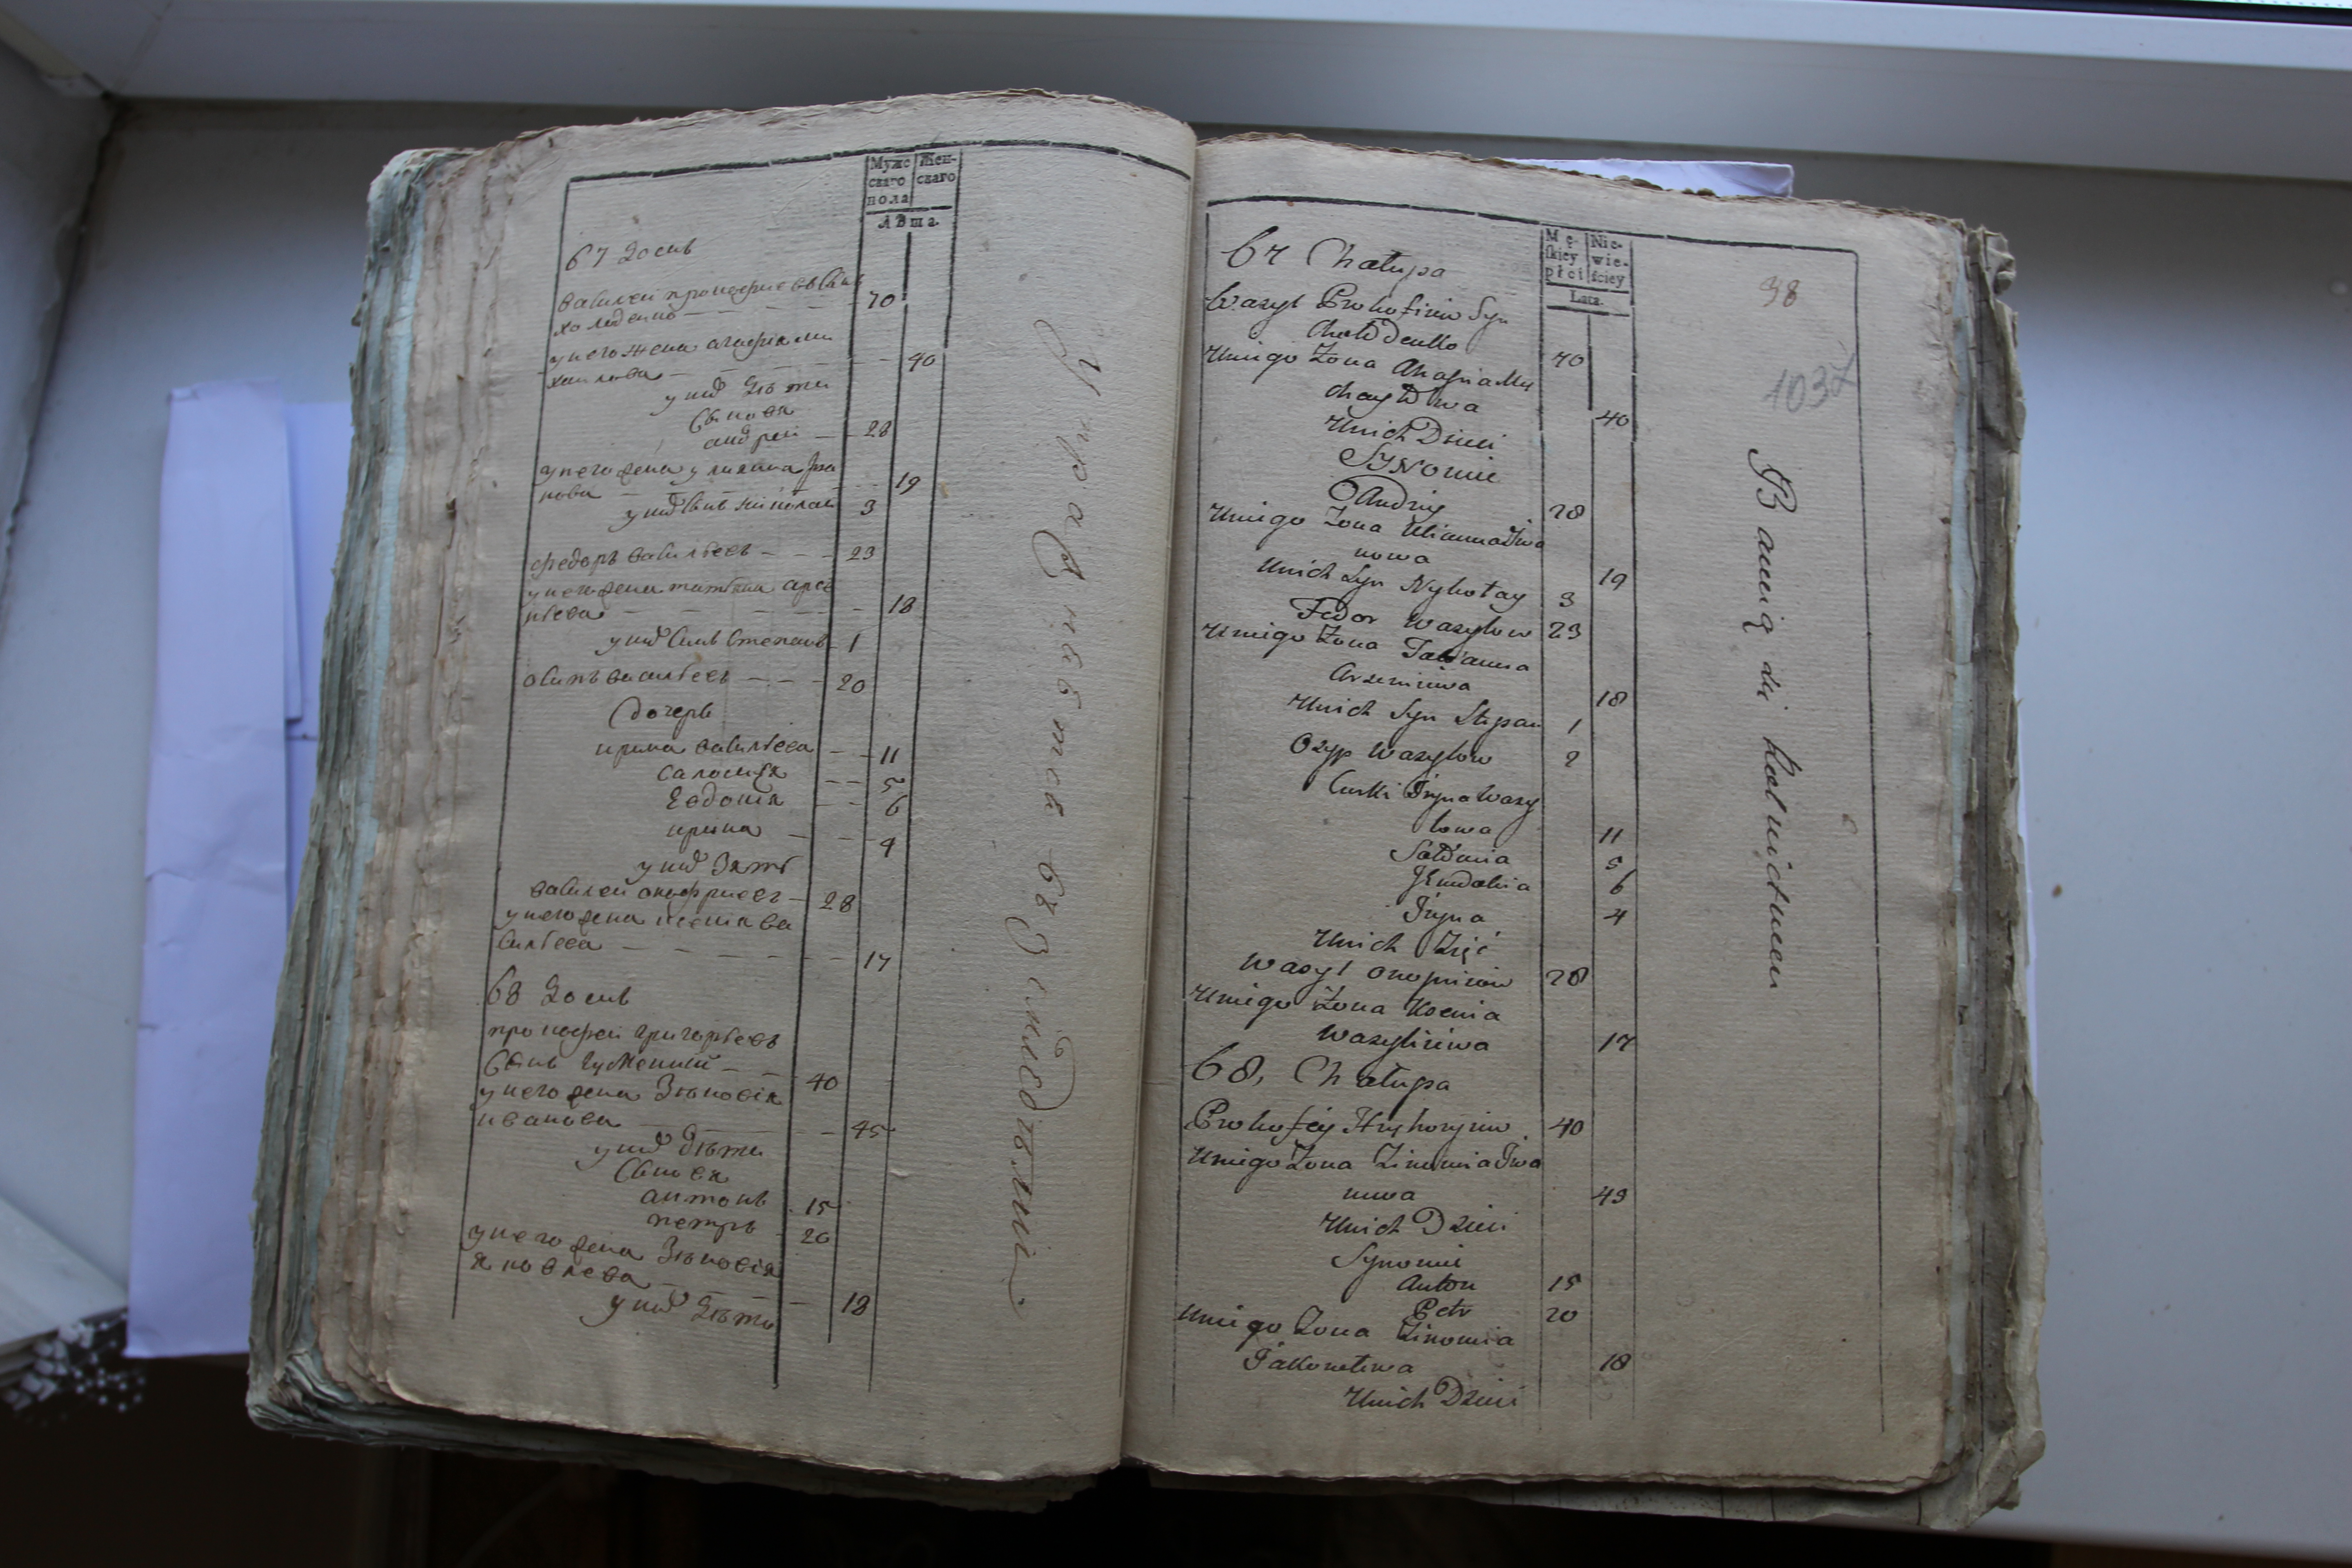 Мужс
скаго
пола
Жен-
скаго
Лѣта.
67 домъ
Василеи прокофиевъ Сынъ
холоденко 70
у него жена агафия ми
хаилова 40
у ниⷯ дѣти
Сыновя
андреи 28
у него жена улияна Ива
нова 19
у ниⷯ Сынъ николаи 3
федоръ васильевъ 23
у него жена татияна арсе
ниева 18
у ниⷯ Сынъ Степанъ 1
осипъ васильевъ 20
дочерь
ирина васильева 11
Саломия 5
Евдокия 6
ирина 4
у ниⷯ Зять
василеи онофриевъ 28
у него жена ксения ва
сильева 17
68 домъ
прокофеи григорьевъ
Сынъ 40
у него жена Зѣновия
иванова 45
у ниⷯ дѣти
Сыновя
антонъ 15
петръ 20
у него жена Зѣновия
яковлева 18
у ниⷯ дѣти
Mę-
skiey
płci
Nie-
wie-
ściey
Lata.
98
1037
67 Chałupa
Wasyl Prokofiiow Syn
Chołodenko 70
U niego Żona Ahafia My
chayłowa 40
U nich Dzieci
Synowie
Andriy 28
U niego Żona Ulianna Iwa
nowa 19
U nich Syn Nykołay 3
Fedor Wasylow 23
U niego Żona Tatianna
Arseniewa 18
U nich Syn Stepan 1
Osyp Wasylow 2
Curki Iryna Wasy
lowa 11
Sołomia 5
Jewdokia 6
Iryna 4
U nich Zięć
Wasyl Onopriiow 28
U niego Żona Ksenia
Wasyliiewa 17
68, Chałupa
Prokofiy Hryhoryiow 40
U niego Żona Zinowia Iwa
nowa 43
U nich Dzieci
Synowie
Anton 15
Petr 20
U niego Żona Zinowia
Jakowlewa 18
U nich Dzieci